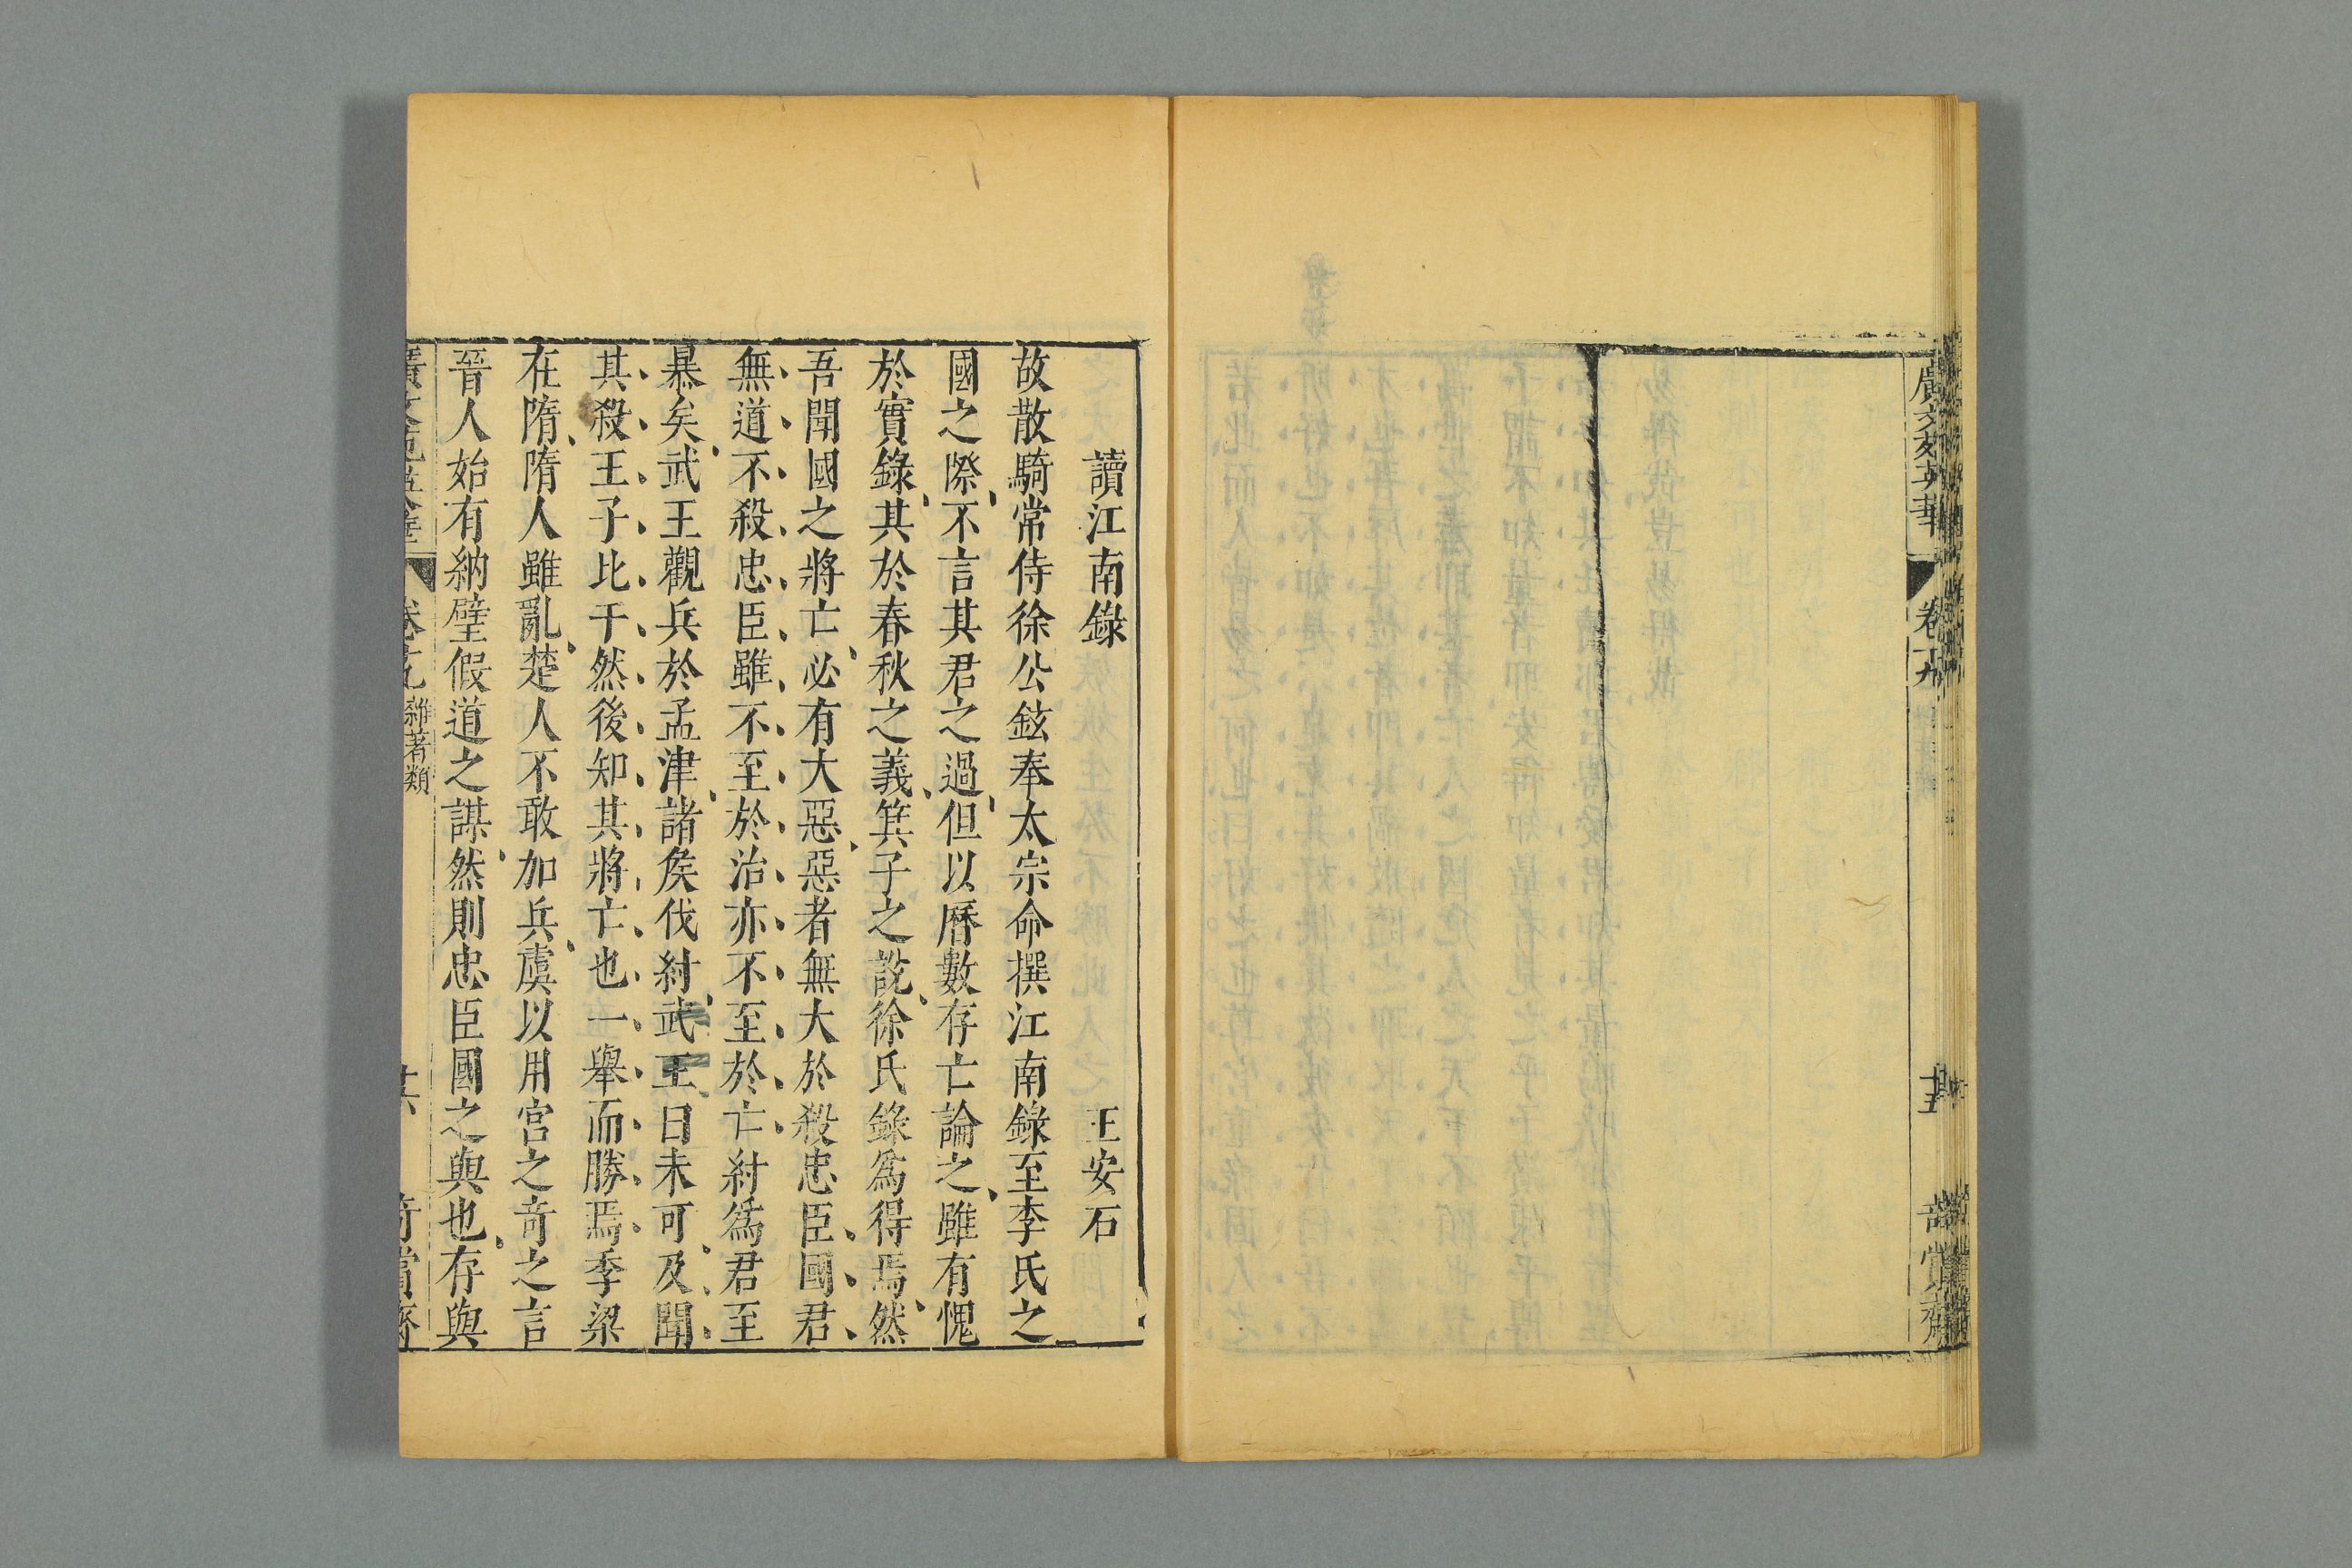 卷十九
讀江南錄 王安石
故散騎常侍徐公鉉奉太宗命撰江南錄至李氏之
國之際不言其君之過但以曆數存亡論之雖有愧
於實錄其於春秋之義箕子之說徐氏錄爲得焉然
吾聞國之將亡必有大惡惡者無大於殺忠臣國君
無道不殺忠臣雖不至於治亦不至於亡紂爲君至
暴矣武王觀兵於孟津諸侯伐紂武王曰未可及聞
其殺王子比干然後知其將亡也一舉而勝焉季梁
在隋隋人雖亂楚人不敢加兵虞以用宮之奇之言
晉人始有納璧假道之謀然則忠臣國之與也存與
雜著類